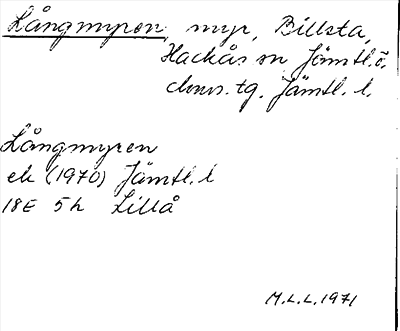 Långmyren, myr, Billsta,
Hackås sn Jämtl.ö.
doms.tg. Jämtl. l.
Långmyren
ek (1970) Jämtl. l
18E 5h Lillå
M.L.L. 1971